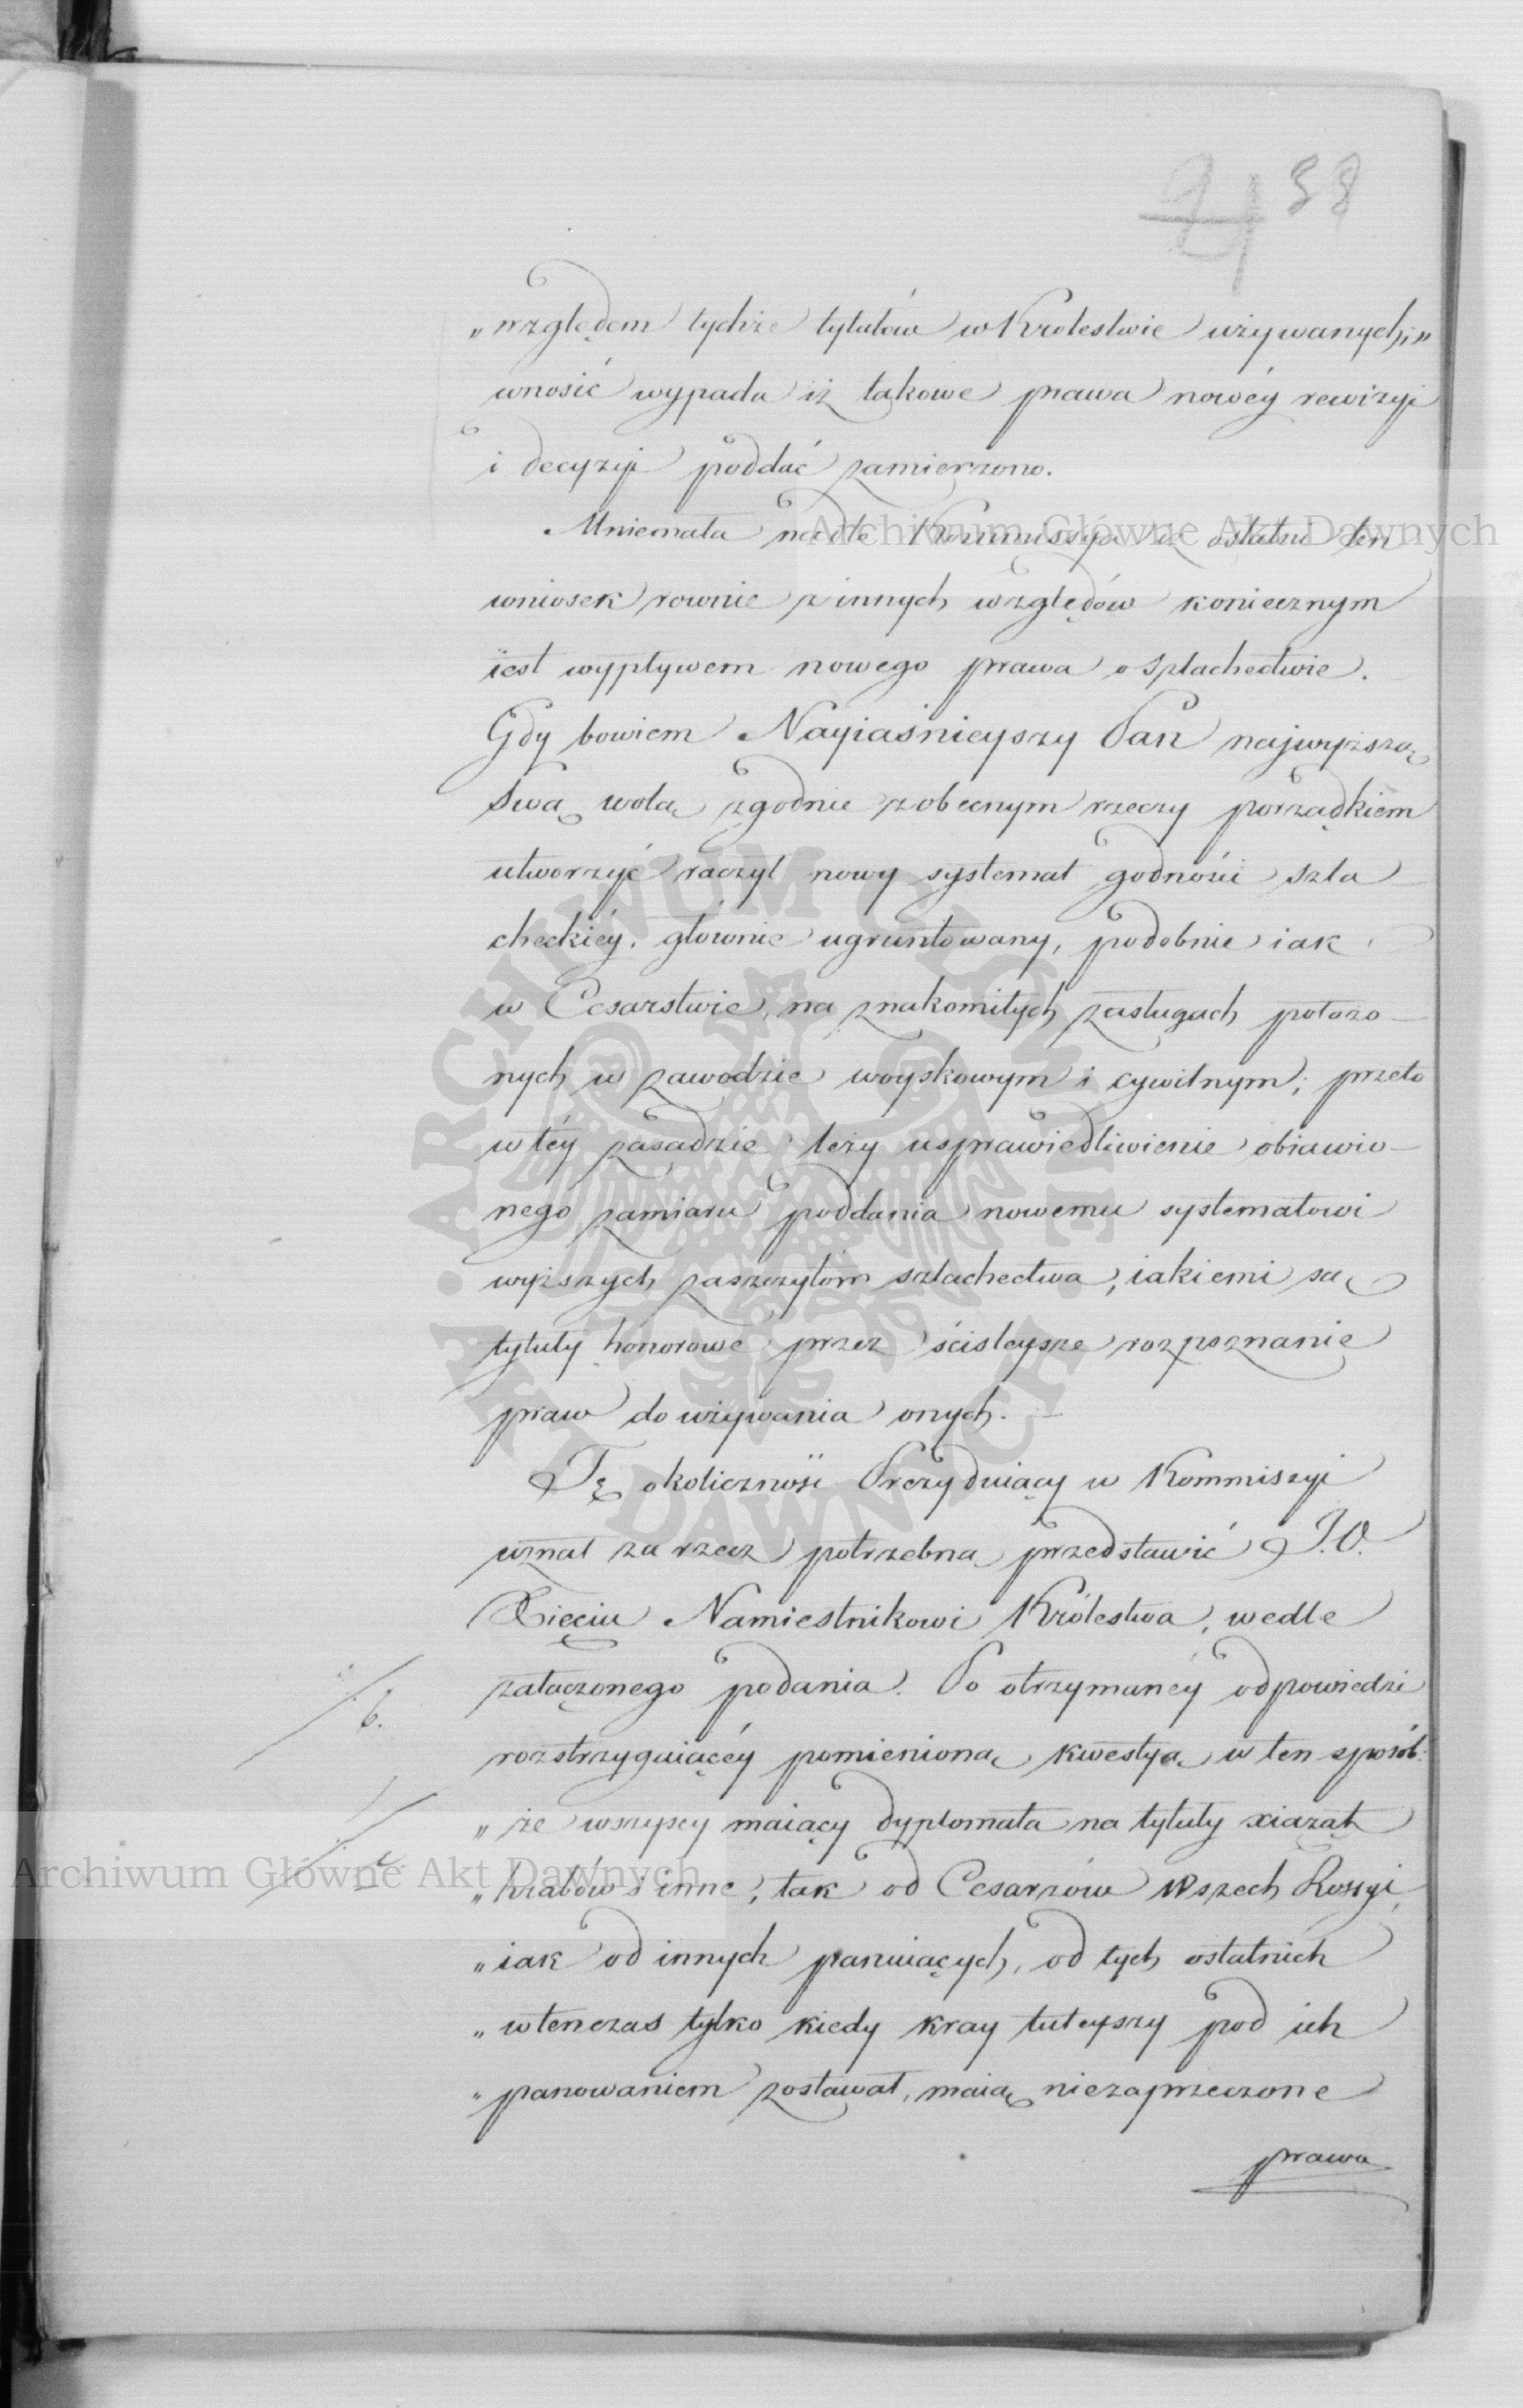 24 38
„względem tychże tytułów w Krolestwie używanych,”
wnosić wypada iż takowe prawa nowéy rewizyi
i decyzyi poddać zamierzono.
Mniemała nadto Kommissya iż ostatni ten
wniosek rownie z innych względów koniecznym
iest wypływem nowego prawa o szlachectwie.
Gdy bowiem Nayiaśnieyszy Pan najwyższą
Swą wolą zgodnie z obecnym rzeczy porządkiem
utworzyć raczył nowy systemat godności szla-
checkiéy, głównie ugruntowany, podobnie iak
w Cesarstwie, na znakomitych zasługach położo-
nych w zawodzie woyskowym i cywilnym; przeto
w téy zasadzie leży usprawiedliwienie obiawio-
nego zamiaru poddania nowemu systematowi
wyższych zaszczytów szlachectwa, iakiemi są
tytuły honorowe przez ściśleysze rozpoznanie
praw do używania onych.
Tę okoliczność Prezyduiący w Kommissyi
uznał za rzecz potrzebną przedstawić J.O.
Xięciu Namiestnikowi Królestwa, wedle
załączonego podania. Po otrzymanéy odpowiedzi
b.
rozstrzyguiącéy pomienioną kwestyą w ten sposób:
„że wszyscy maiący dyplomata na tytuły xiążąt
„hrabów i inne, tak od Cesarzów Wszech Rossyi,
c.
„iak od innych panuiących, od tych ostatnich
„wtenczas tylko kiedy kray tuteyszy pod ich
„panowaniem zostawał, maią niezaprzeczone
prawa
Archiwum Główne Akt Dawnych
Archiwum Główne Akt Dawnych
ARCHIWUM GŁÓWNE AKT DAWNYCH